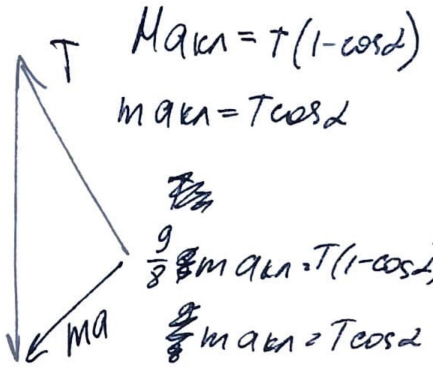 T
Maкл = T(1-cosα)
maкл = Tcosα
9/8 maкл = T(1-cosα)
maкл = Tcosα
ma